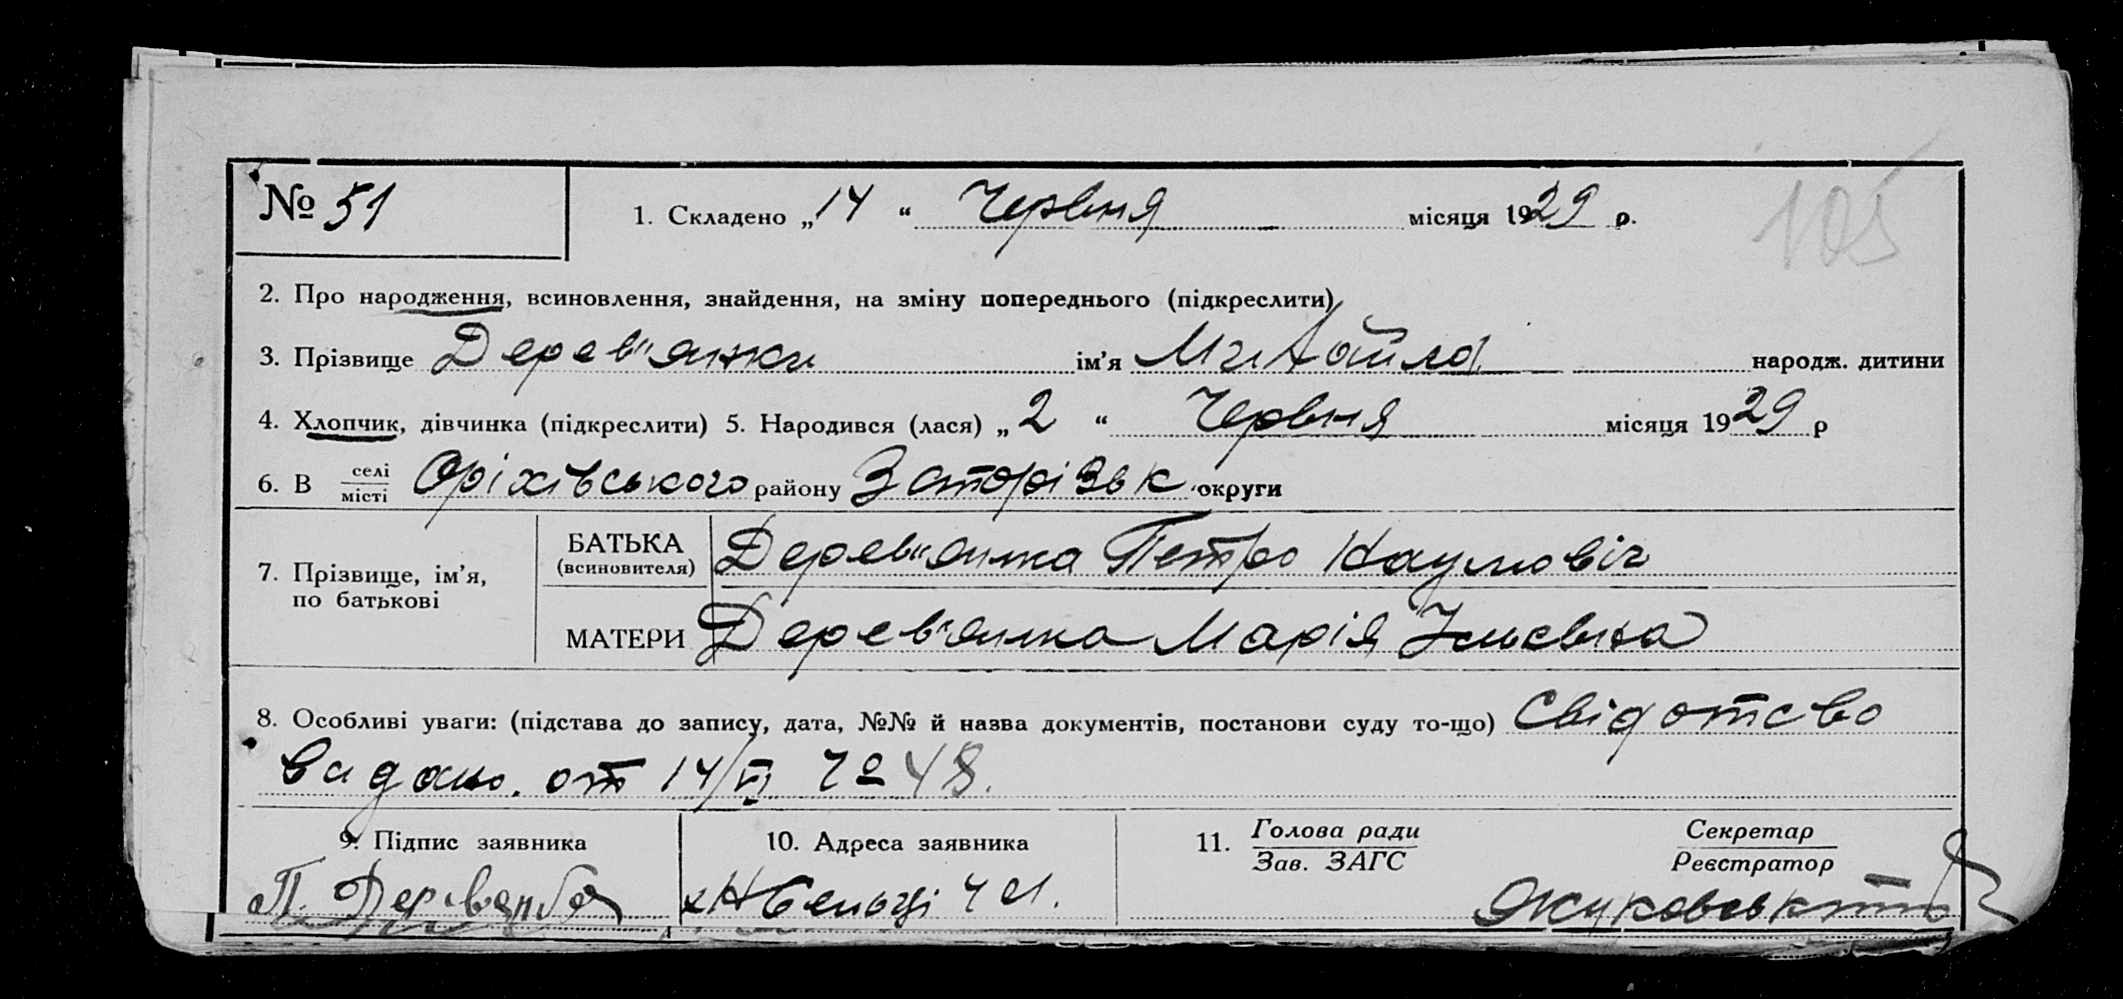 № 51
1. Складено „14 “ Червня місяця 1929 р.
105
2. Про народження, всиновлення, знайдення, на зміну попереднього (підкреслити)
3. Прізвище Дерев"янки ім’я Михайла народж. дитини
4. Хлопчик, дівчинка (підкреслити) 5. Народився (лася) „ 2 “ Червня місяця 1929 р
6. В селі місті Оріхівського району Запорізьк округи
7. Прізвище, ім’я, по батькові
БАТЬКА (всиновителя) Дерев"янка Петро Наумовіч
МАТЕРИ Дерев"янка Марія
8. Особливі уваги: (підстава до запису, дата, №№ й назва документів, постанови суду то-що) Свідотство
видано. от 14/VI № 48.
9. Підпис заявника
10. Адреса заявника
11. Голова ради
Зав. ЗАГС
Секретар
Реєстратор
П.